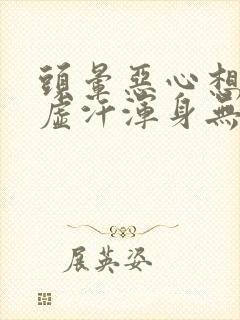 頭暈惡心想
虛汗渾身無
展英姿